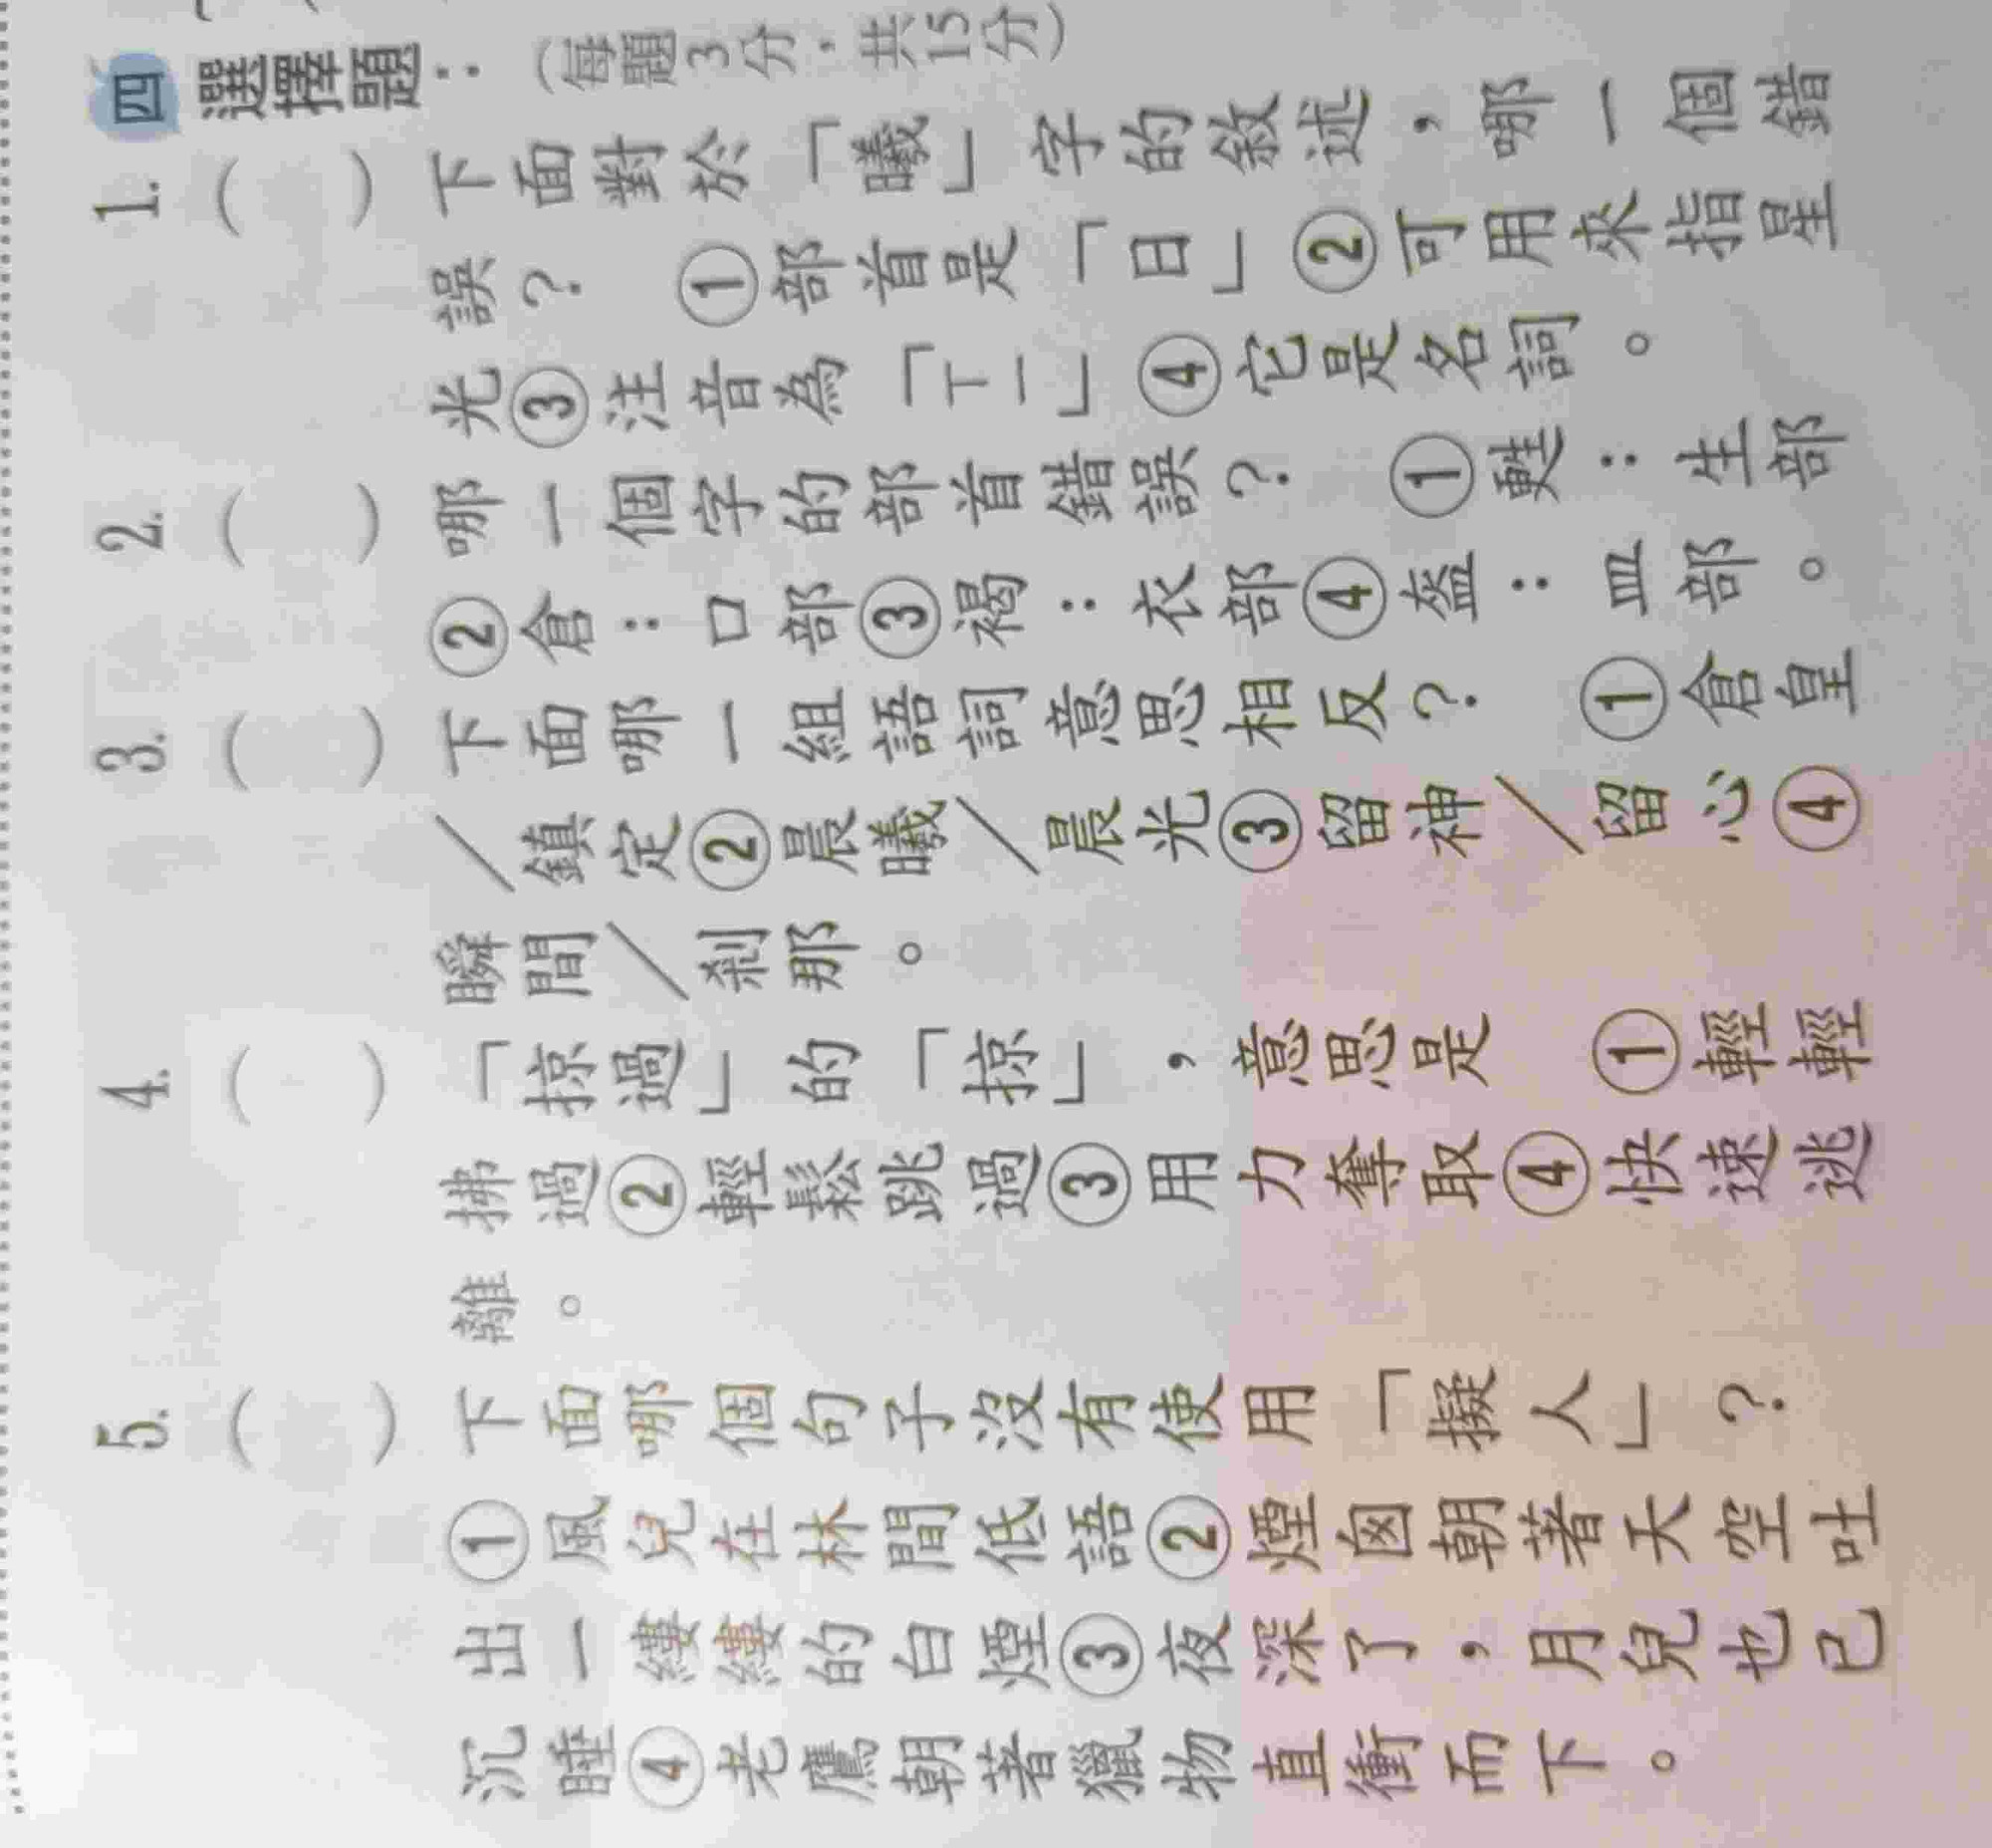 四 選擇題：（每題3分，共15分）
1. （ ） 下面對於「曦」字的敘述，哪一個錯
誤？ ①部首是「日」②可用來指星
光③注音為「ㄒㄧ」④它是名詞。
2. （ ） 哪一個字的部首錯誤？ ①甦：生部
②倉：口部③褐：衣部④盔：皿部。
3. （ ） 下面哪一組語詞意思相反？ ①倉皇
／鎮定②晨曦／晨光③留神／留心④
瞬間／剎那。
4. （ ） 「掠過」的「掠」，意思是 ①輕輕
拂過②輕鬆跳過③用力奪取④快速逃
離。
5. （ ） 下面哪個句子沒有使用「擬人」？
①風兒在林間低語②煙囪朝著天空吐
出一縷縷的白煙③夜深了，月兒也已
沉睡④老鷹朝著獵物直衝而下。